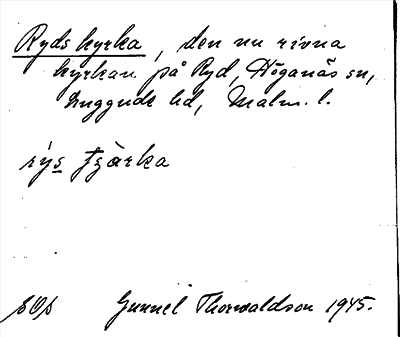 Ryds kyrka, den nu rivna
kyrkan på Ryd, Höganäs sn,
Luggude hd, Malm. l.
rýs
Gunnel Thorvaldson 1945.